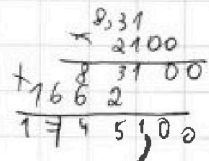 8,31
× 2100
8 31 00
+ 1662
17451,00